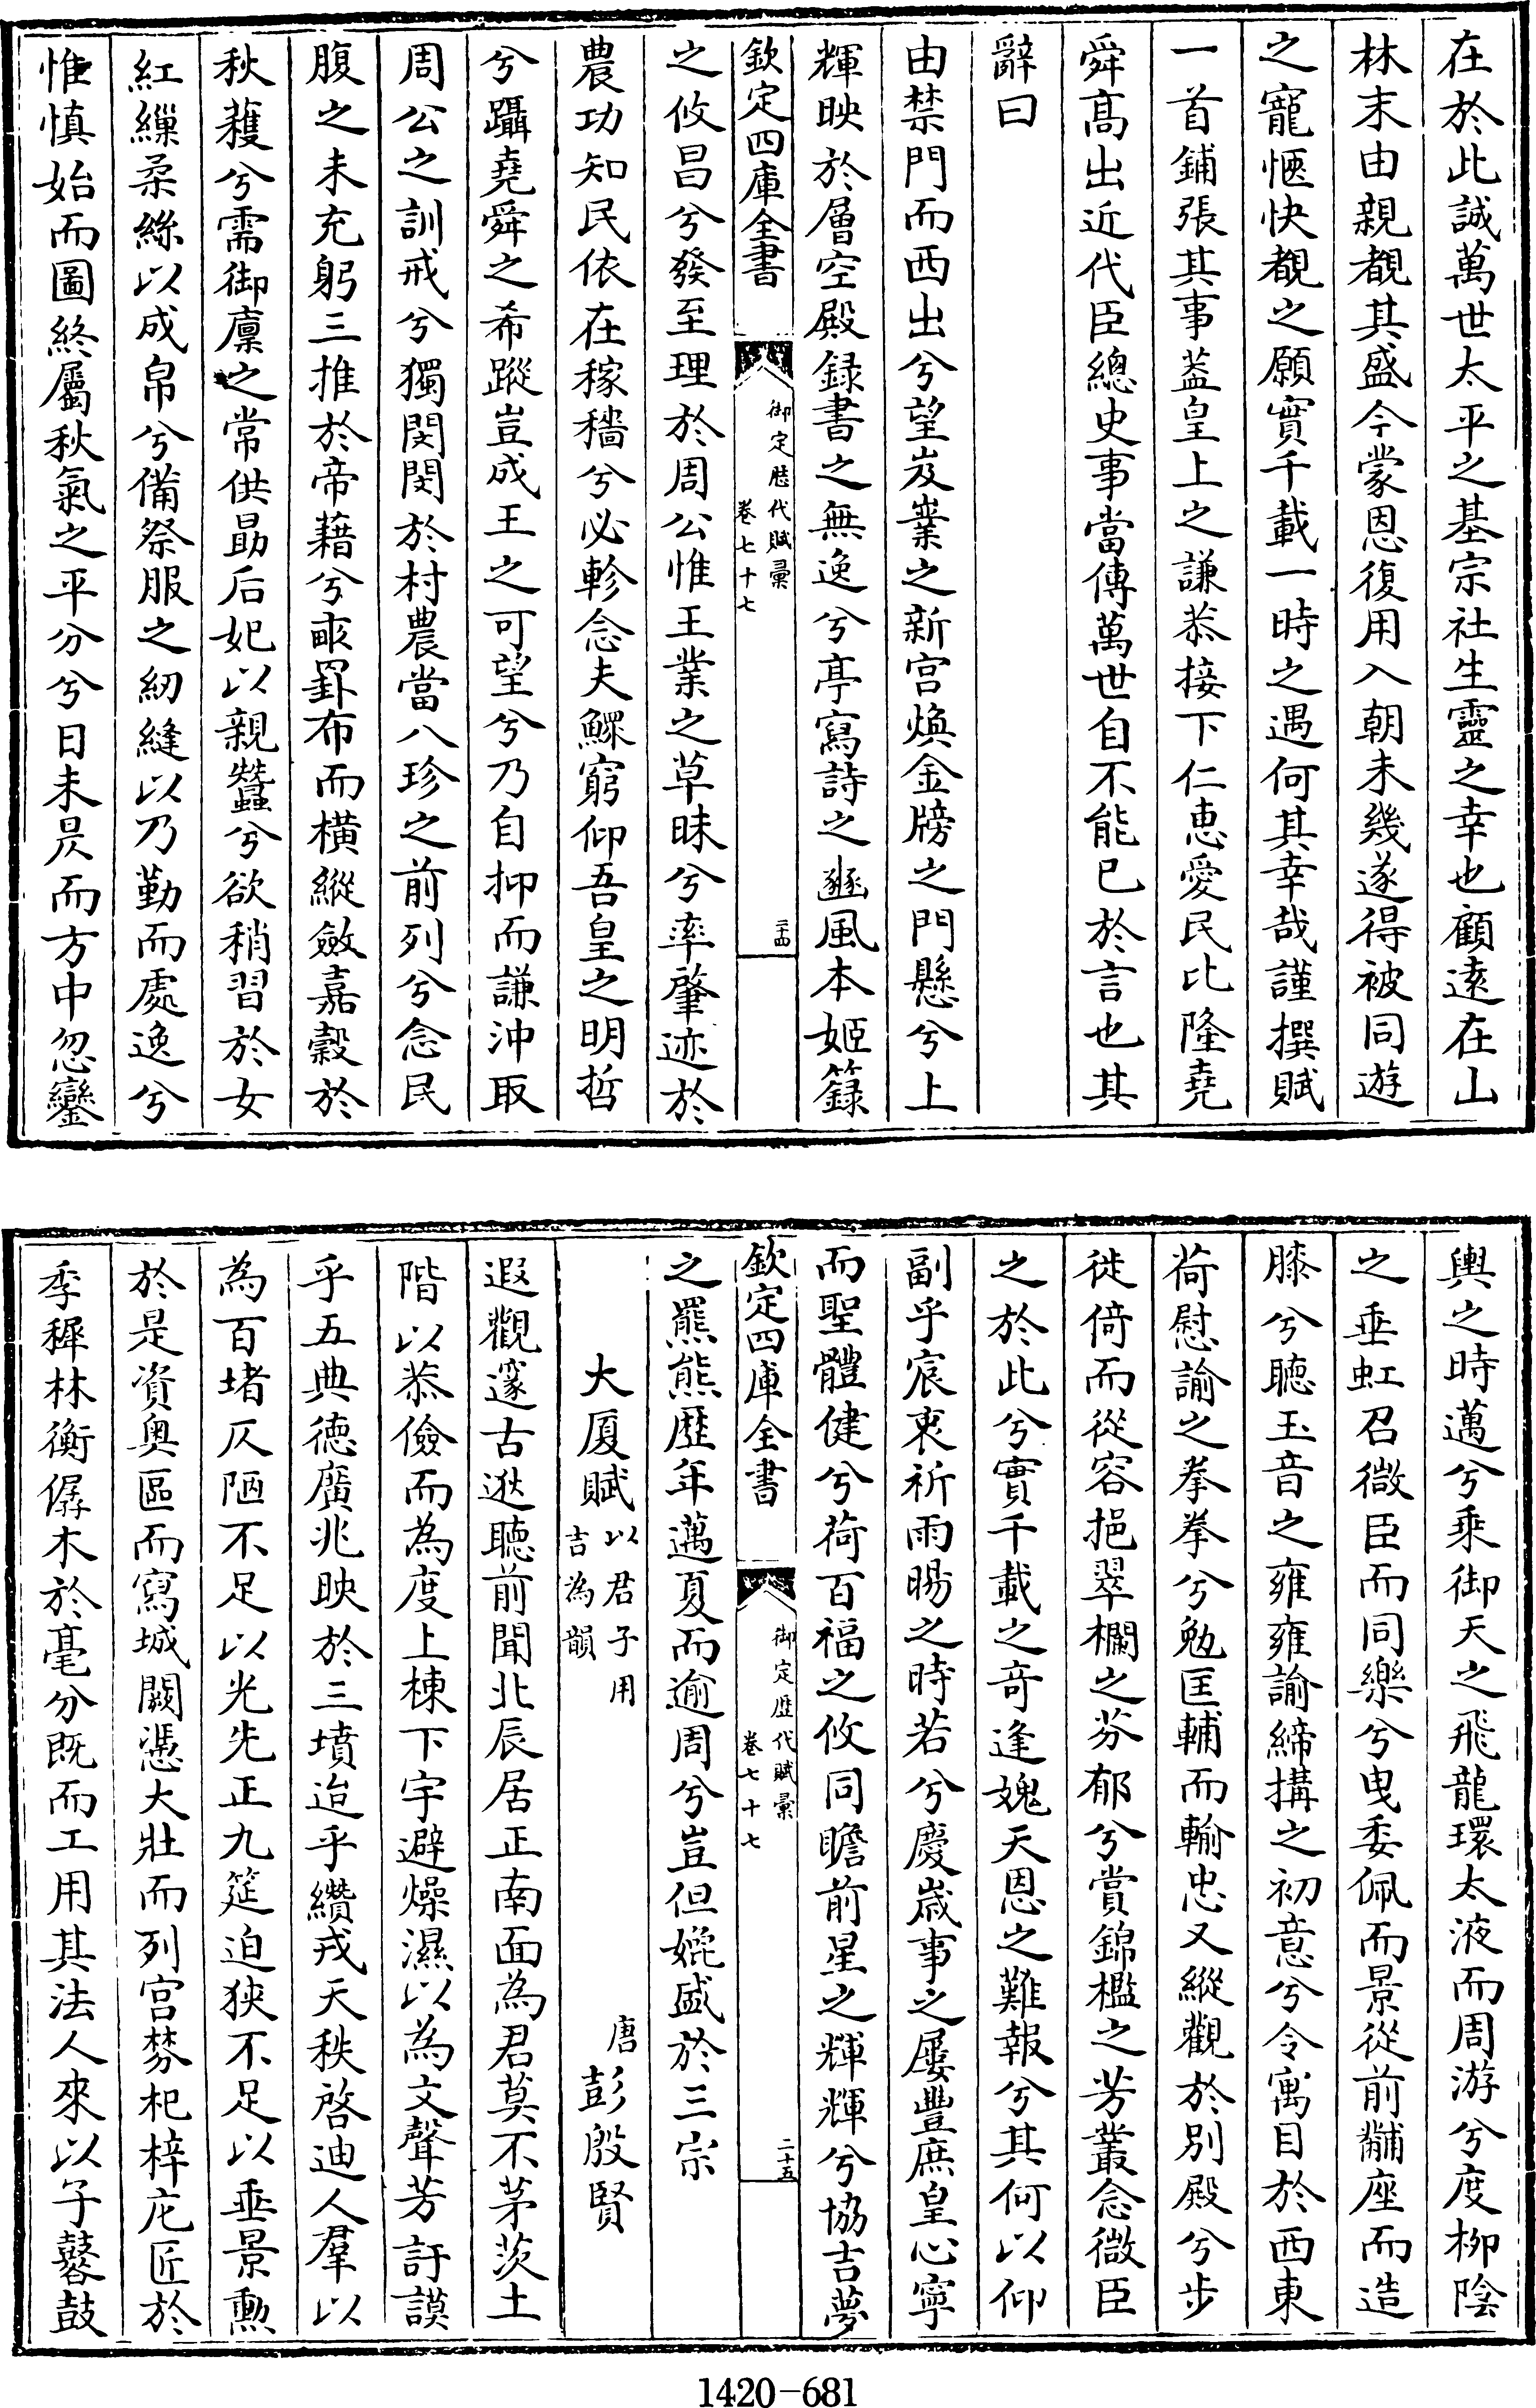 在於此誠萬世太平之基宗社生靈之幸也顧遠在山
林末由親覩其盛今蒙恩復用入朝未幾遂得被同遊
之寵愜快覩之願實千載一時之遇何其幸哉謹撰賦
一首鋪張其事葢皇上之謙恭接下仁惠愛民比隆堯
舜髙出近代臣總史事當傳萬世自不能已於言也其
辭曰
由禁門而西出兮望岌嶪之新宫煥金牓之門懸兮上
輝映於層空殿録書之無逸兮亭寫詩之豳風本姬籙
欽定四庫全書
御定歴代賦彙
卷七十七
二十四
之攸昌兮發至理於周公惟王業之草昧兮率肇迹於
農功知民依在稼穡兮必軫念夫鰥窮仰吾皇之明哲
兮躡堯舜之希蹤豈成王之可望兮乃自抑而謙沖取
周公之訓戒兮獨閔閔於村農當八珍之前列兮念民
腹之未充躬三推於帝藉兮畞罫布而横縱斂嘉穀於
秋蓛兮需御廩之常供勗后妃以親蠶兮欲稍習於女
紅繅柔絲以成帛兮備祭服之紉縫以乃勤而處逸兮
惟慎始而圖終屬秋氣之平分兮日未昃而方中忽鑾
輿之時邁兮乗御天之飛龍環太液而周游兮度柳陰
之垂虹召微臣而同樂兮曳委佩而景從前黼座而造
膝兮聴玉音之雍雍諭締搆之初意兮令寓目於西東
荷慰諭之拳拳兮勉匡輔而輸忠又縱觀於别殿兮步
徙倚而從容挹翠欄之芬郁兮賞錦檻之芳叢念微臣
之於此兮實千載之竒逢媿天恩之難報兮其何以仰
副乎宸衷祈雨暘之時若兮慶嵗事之屢豐庶皇心寧
而聖體健兮荷百福之攸同瞻前星之輝輝兮協吉夢
欽定四庫全書
御定歴代賦彙
卷七十七
二十五
之羆熊歴年邁夏而逾周兮豈但媲盛於三宗
大厦賦以君子用吉為韻
唐彭殷賢
遐觀邃古逖聴前聞北辰居正南面為君莫不茅茨土
階以恭儉而為度上棟下宇避燥濕以為文聲芳訏謨
乎五典徳廣兆映於三墳迨乎纘戎天秩啓迪人羣以
為百堵仄陋不足以光先正九筵迫狹不足以垂景勲
於是資奥區而寫城闕憑大壯而列宫棼杞梓庀匠於
季穉林衡僝木於毫分既而工用其法人來以子鼛鼓
1420-681